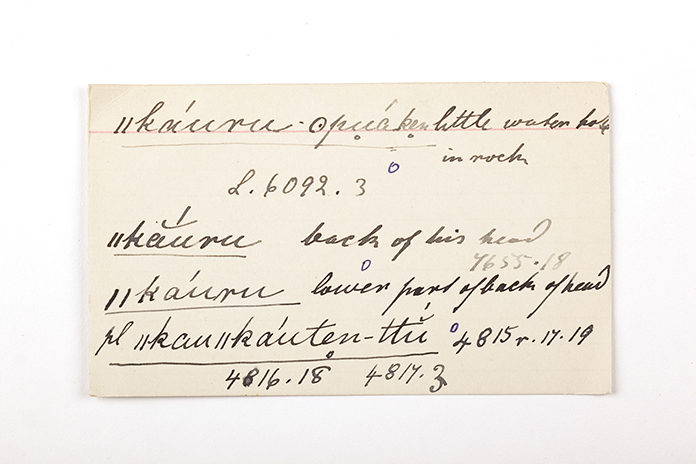 ǁkáuru-ʘpu̥ák̥en little water hole
in rock
L. 6092. 3
ǁkắuru back of his head
4655.18
ǁkáuru lower part of back of head
pl ǁkauǁkáut̥en-ttŭ́ 4815 r. 17. 19
4816. 18 4817. 3